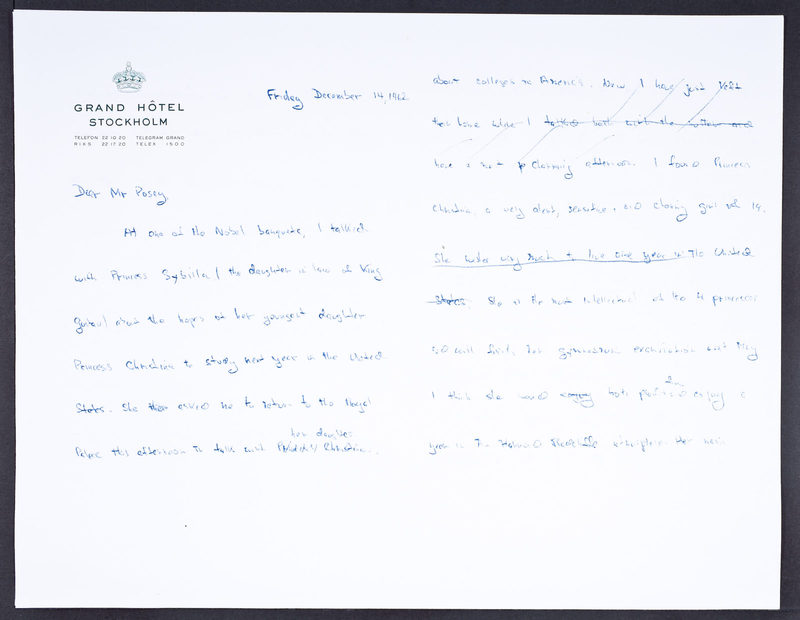 GRAND HÔTEL
STOCKHOLM
TELEFON 22 10 20 TELEGRAM GRAND
RIKS 22 17 20 TELEX 1500
Friday December 14, 1962
Dear Mr Posey,
At one of the Nobel banquets, I talked
with Princess Sybilla (the daughter in law of King
Gustav) about the hopes of her youngest daughter
Princess Christina to study next year in the United
States. She then asked me to return to the Royal
her daughter
Palace this afternoon to talk with Princess Christina
about colleges in America. Now I have just left
this home where I talked both with the mother and
have a most charming afternoon. I found Princess
Christina, a very alert, sensitive and charming girl of 19.
She wishes very much to live one year in the United
States. She is the most intellectual of the 4 princesses
and will finish her gymnasium examination next May
I think she would enjoy both profit in and enjoy a
year in The Harvard Radcliffe atmosphere. Her main